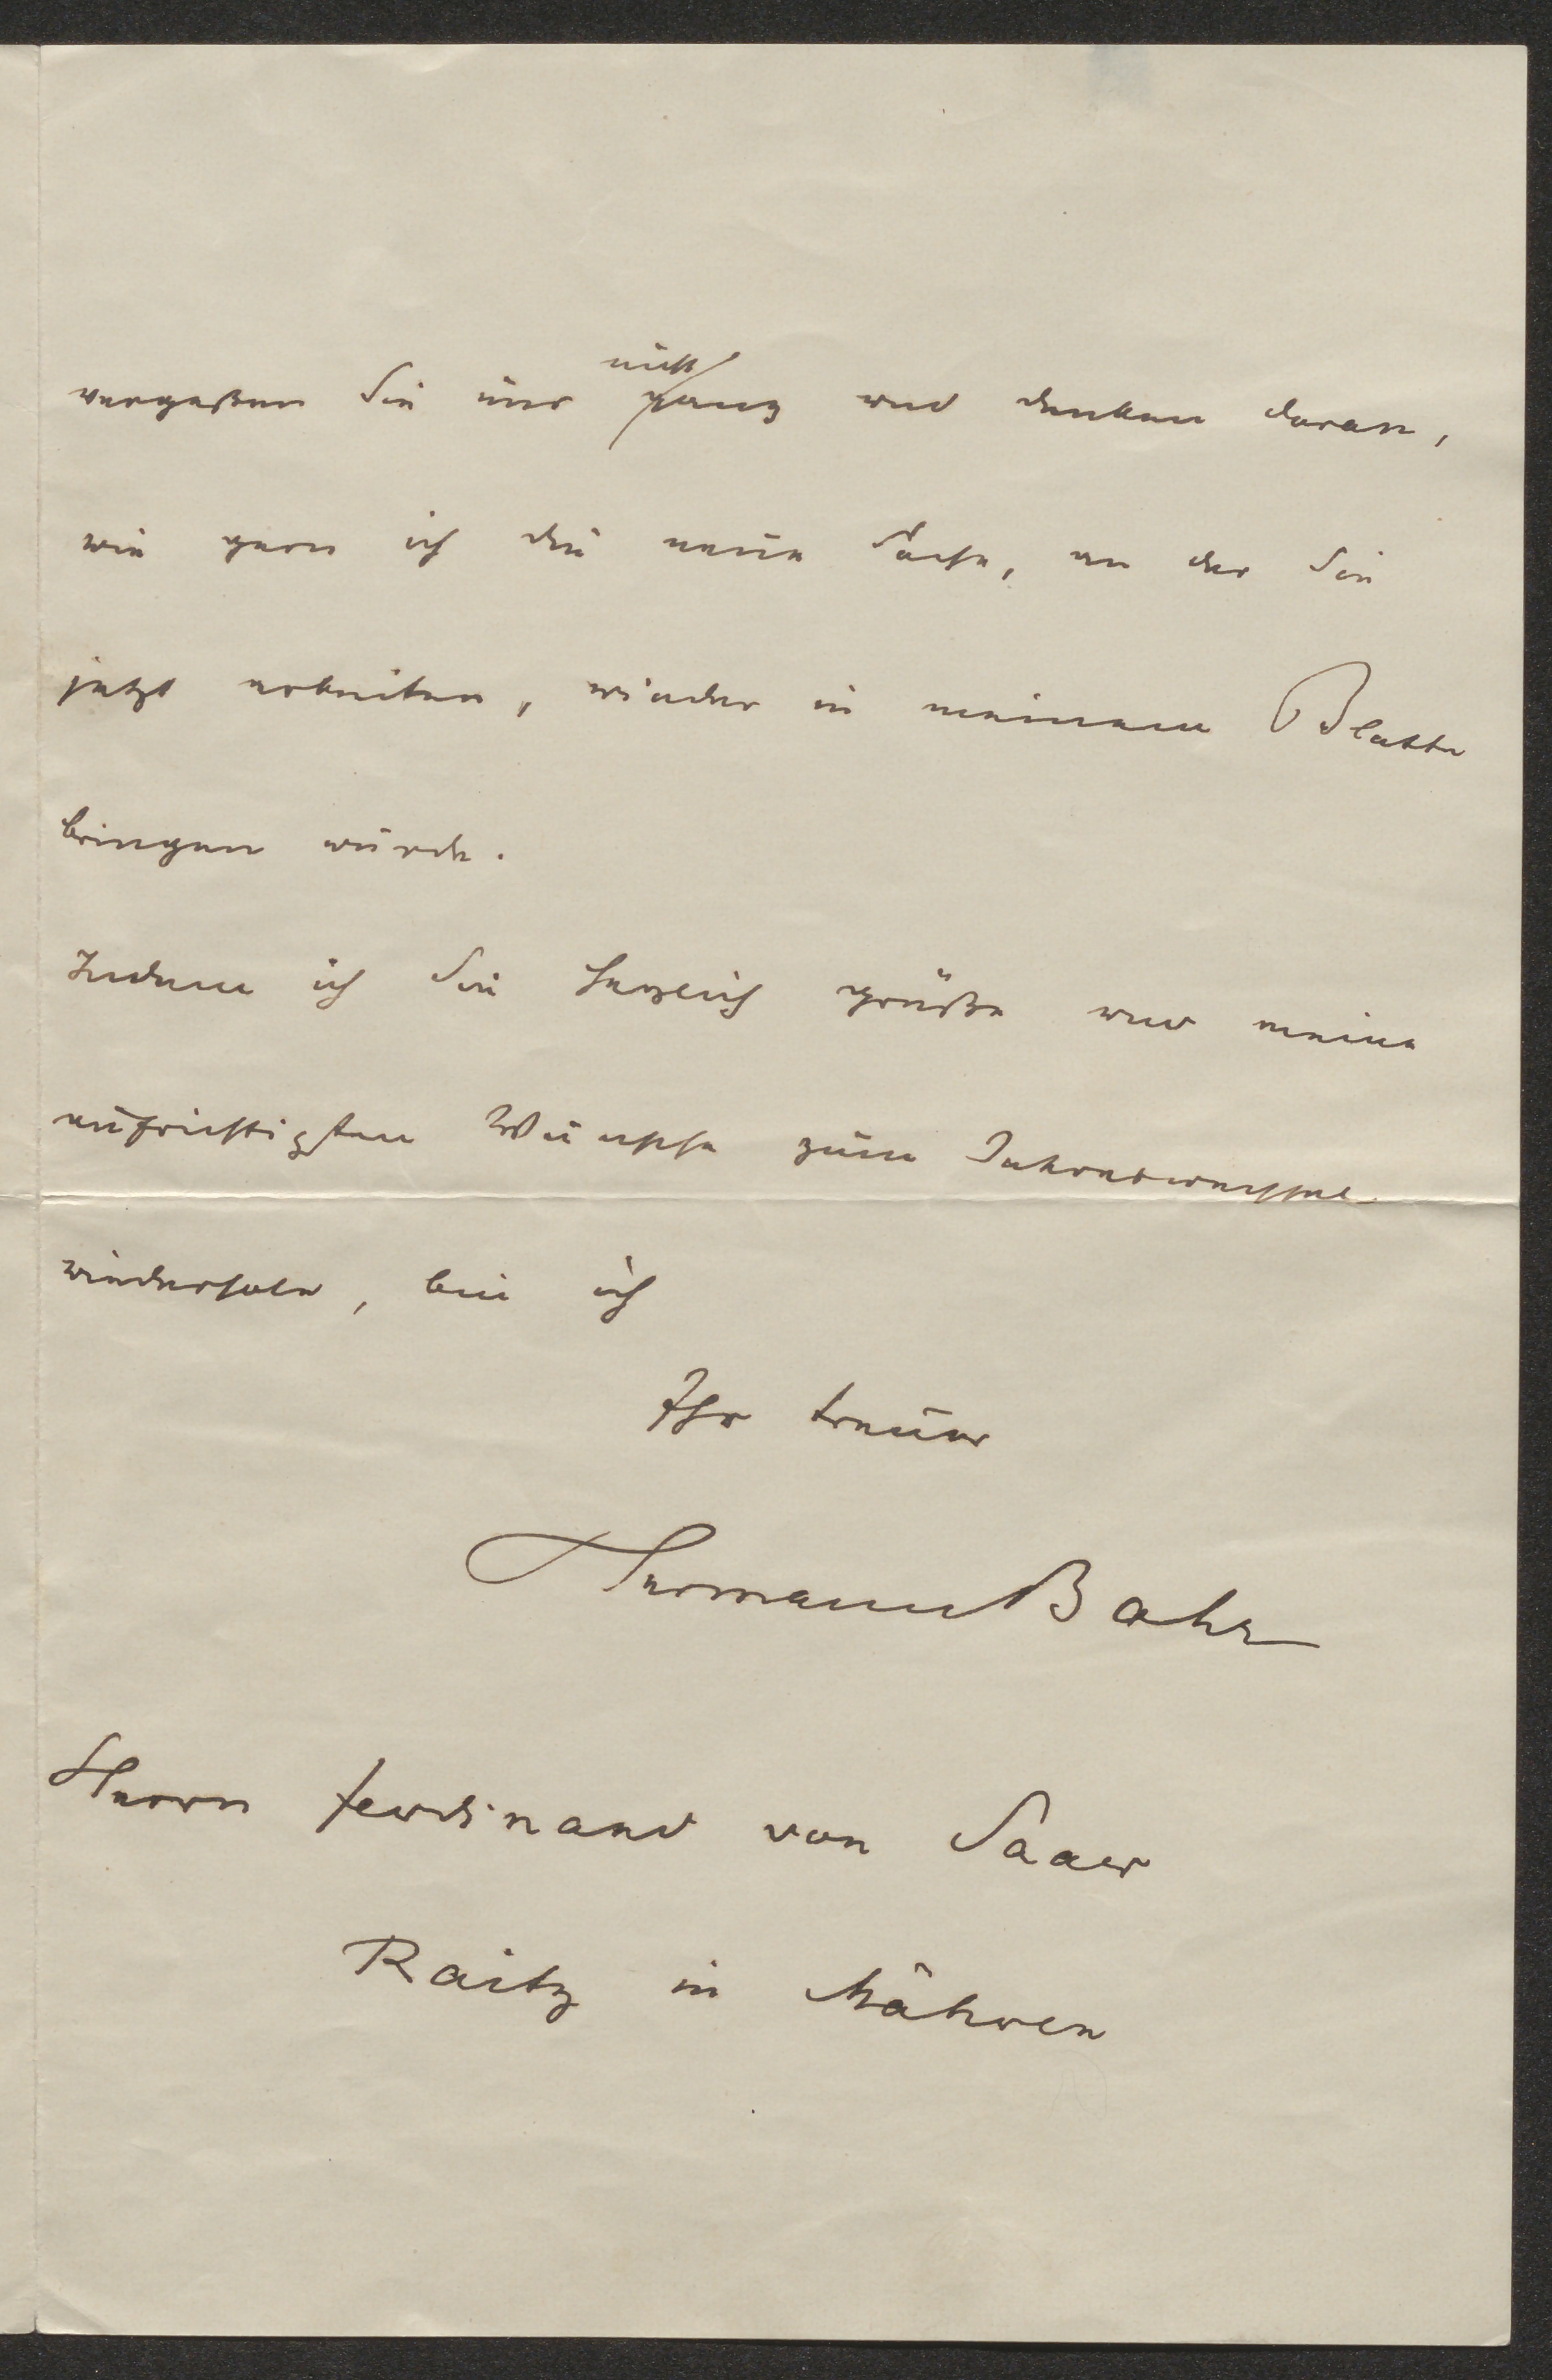 vergeßen Sie uns nicht ganz und denken daran,
wie gern ich die neue Sache, an der Sie
jetzt arbeiten, wieder in meinem Blatte
bringen würde.
Indem ich Sie herzlich grüße und meine
aufrichtigsten Wünsche zum Jahreswechsel
wiederhole, bin ich
Ihr treuer
Hermann Bahr
Herrn Ferdinand von Saar
Raitz in Mähren